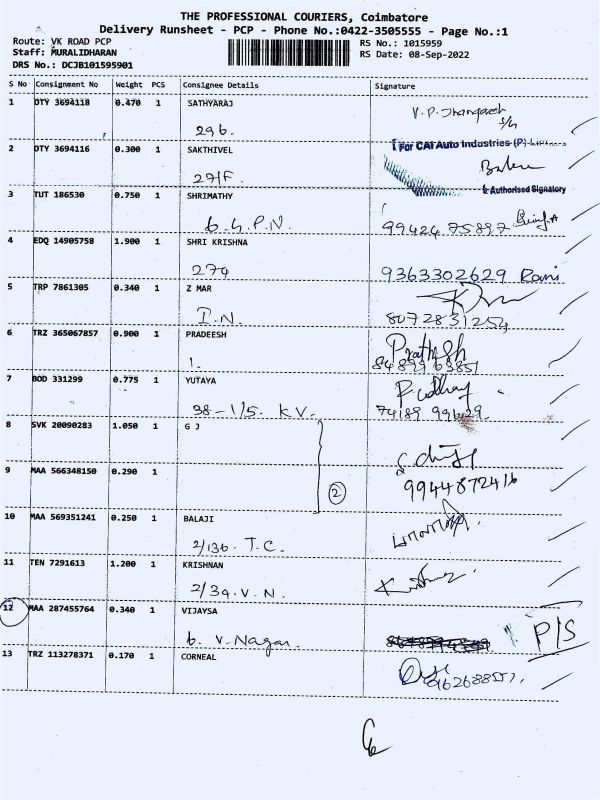 THE PROFESSIONAL COURIERS, Coimbatore
Delivery Runsheet - PCP - Phone No.:0422-3505555 - Page No.:1
Route: VK ROAD PCP
Staff: MURALIDHARAN
DRS No.: DCJB101595901
RS No.: 1015959
RS Date: 08-Sep-2022
S No Consignment No Weight PCS Consignee Details Signature
1 DTY 3694118 0.470 1 SATHYARAJ
296.
2 DTY 3694116 0.300 1 SAKTHIVEL
For CAI Auto Industries (P)
271F
Authorised Signatory
3 TUT 186530 0.750 1 SHRIMATHY
6.G.P.N.
99424 75897
4 EDQ 14905758 1.900 1 SHRI KRISHNA
274
9363302629 Rani
5 TRP 7861305 0.340 1 Z MAR
I.N.
8072831254
6 TRZ 365067857 0.900 1 PRADEESH
1.
Prathesh
84899 63851
7 BOD 331299 0.775 1 YUTAYA
38-1/5. KV.
P. udhay
74189 99629
8 SVK 20090283 1.050 1 G J
9 MAA 566348150 0.290 1
2
9944872416
10 MAA 569351241 0.250 1 BALAJI
2/136. T.C.
11 TEN 7291613 1.200 1 KRISHNAN
2/34.V.N.
12 MAA 287455764 0.340 1 VIJAYSA
6. V. Nagar.
P/S
13 TRZ 113278371 0.170 1 CORNEAL